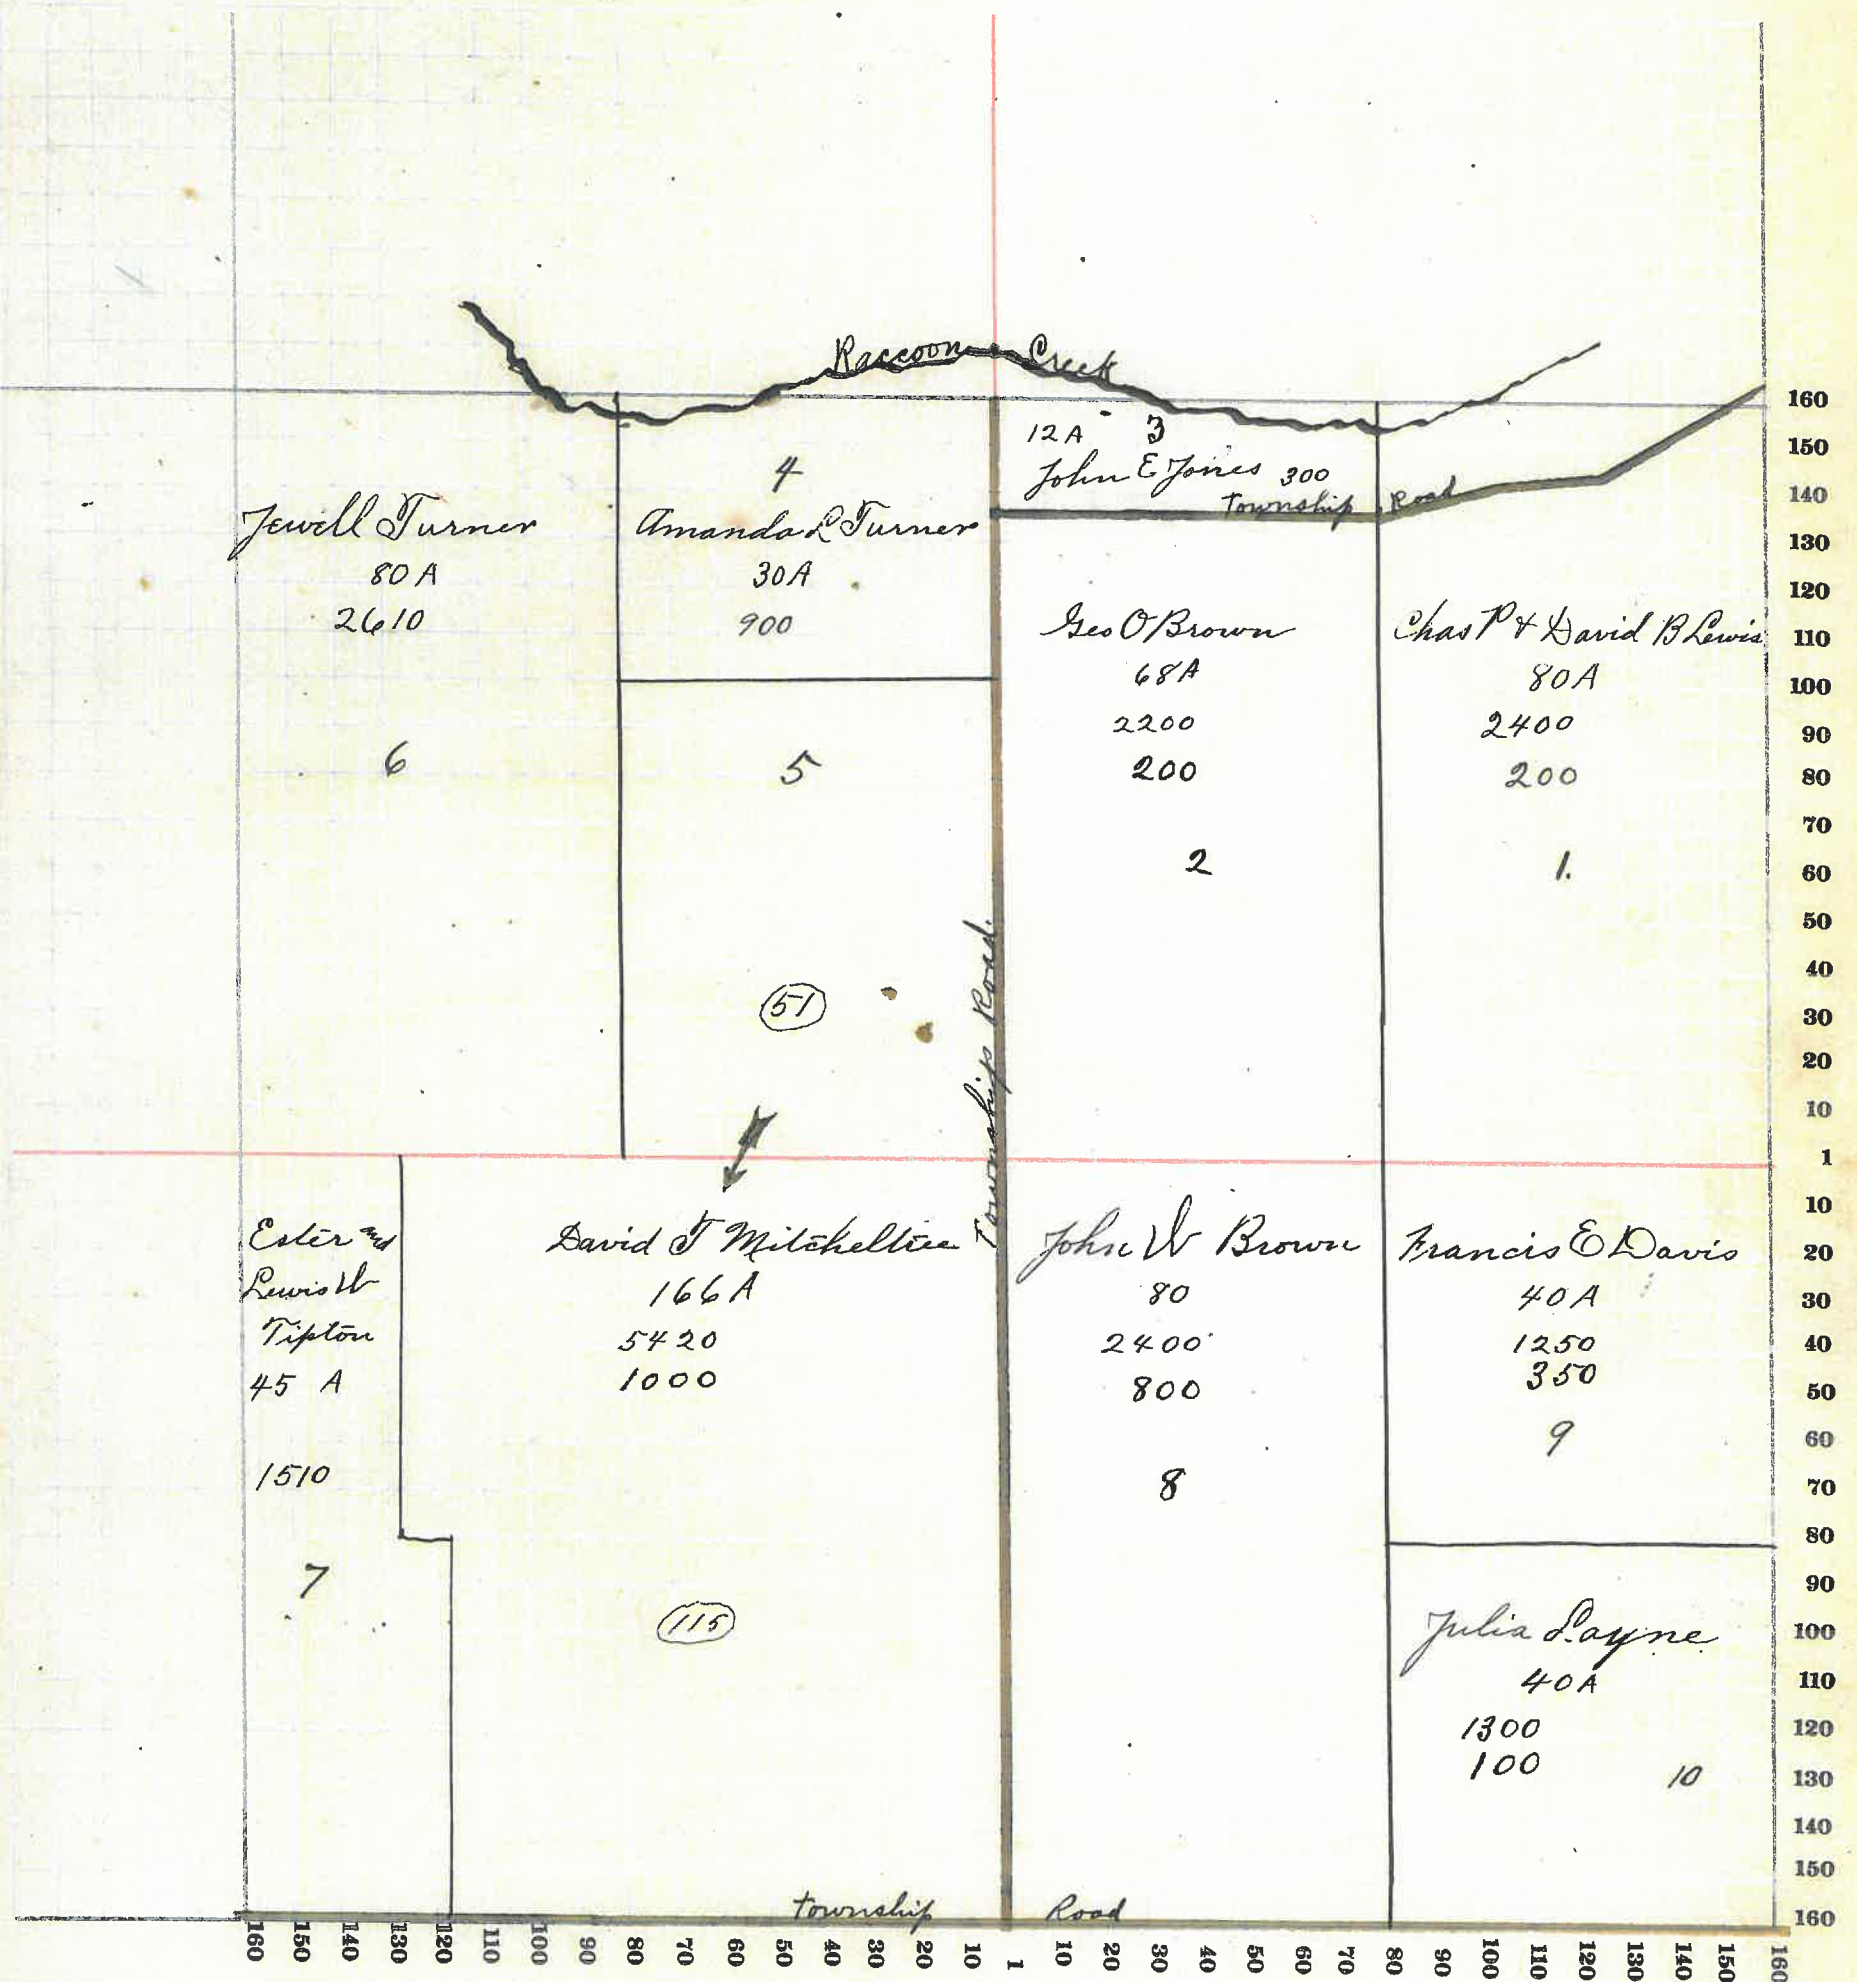 Raccoon Creek
12A 3
John E Jones 300
Township Road
4
Amanda L Turner
30A
900
Jewell Turner
80 A
2610
6
5
51
Geo O Brown
68A
2200
200
2
Chas P & David B Lewis
80A
2400
200
1.
Township Road.
Ester and
Lewis W
Tipton
45 A
1510
7
David T Mitcheltree
166 A
5420
1000
115
John W Brown
80
2400
800
8
Francis E Davis
40A
1250
350
9
Julia Layne
40A
1300
100
10
Township Road
160
150
140
130
120
110
100
90
80
70
60
50
40
30
20
10
1
10
20
30
40
50
60
70
80
90
100
110
120
130
140
150
160
160 150 140 130 120 110 100 90 80 70 60 50 40 30 20 10 1 10 20 30 40 50 60 70 80 90 100 110 120 130 140 150 160